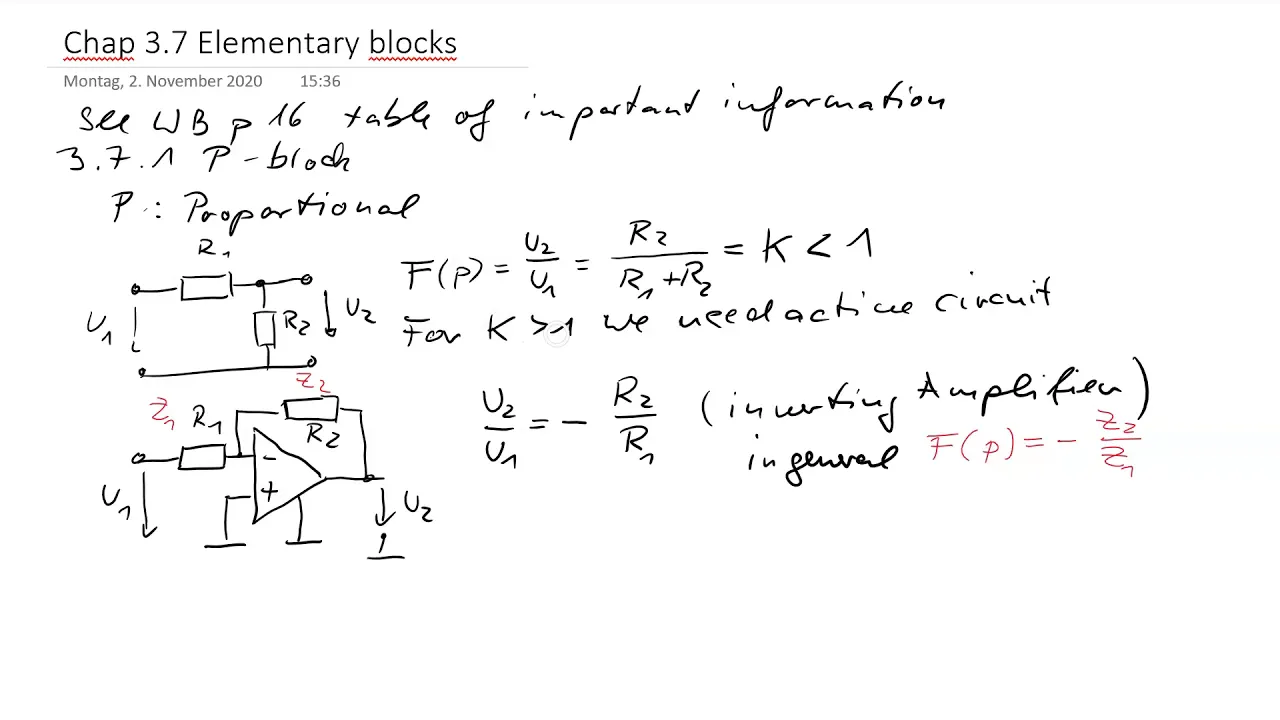 Chap 3.7 Elementary blocks
Montag, 2. November 2020 15:36
See WB p 16 table of important information
3.7.1 P-block
P : Proportional
R₁
U₁
R₂
U₂
F(p) = U₂/U₁ = R₂/(R₁+R₂) = K < 1
For K > 1 we need active circuit
Z₂
Z₁
R₁
R₂
-
+
U₁
U₂
U₂/U₁ = - R₂/R₁ (inverting Amplifier)
in general F(p) = - Z₂/Z₁